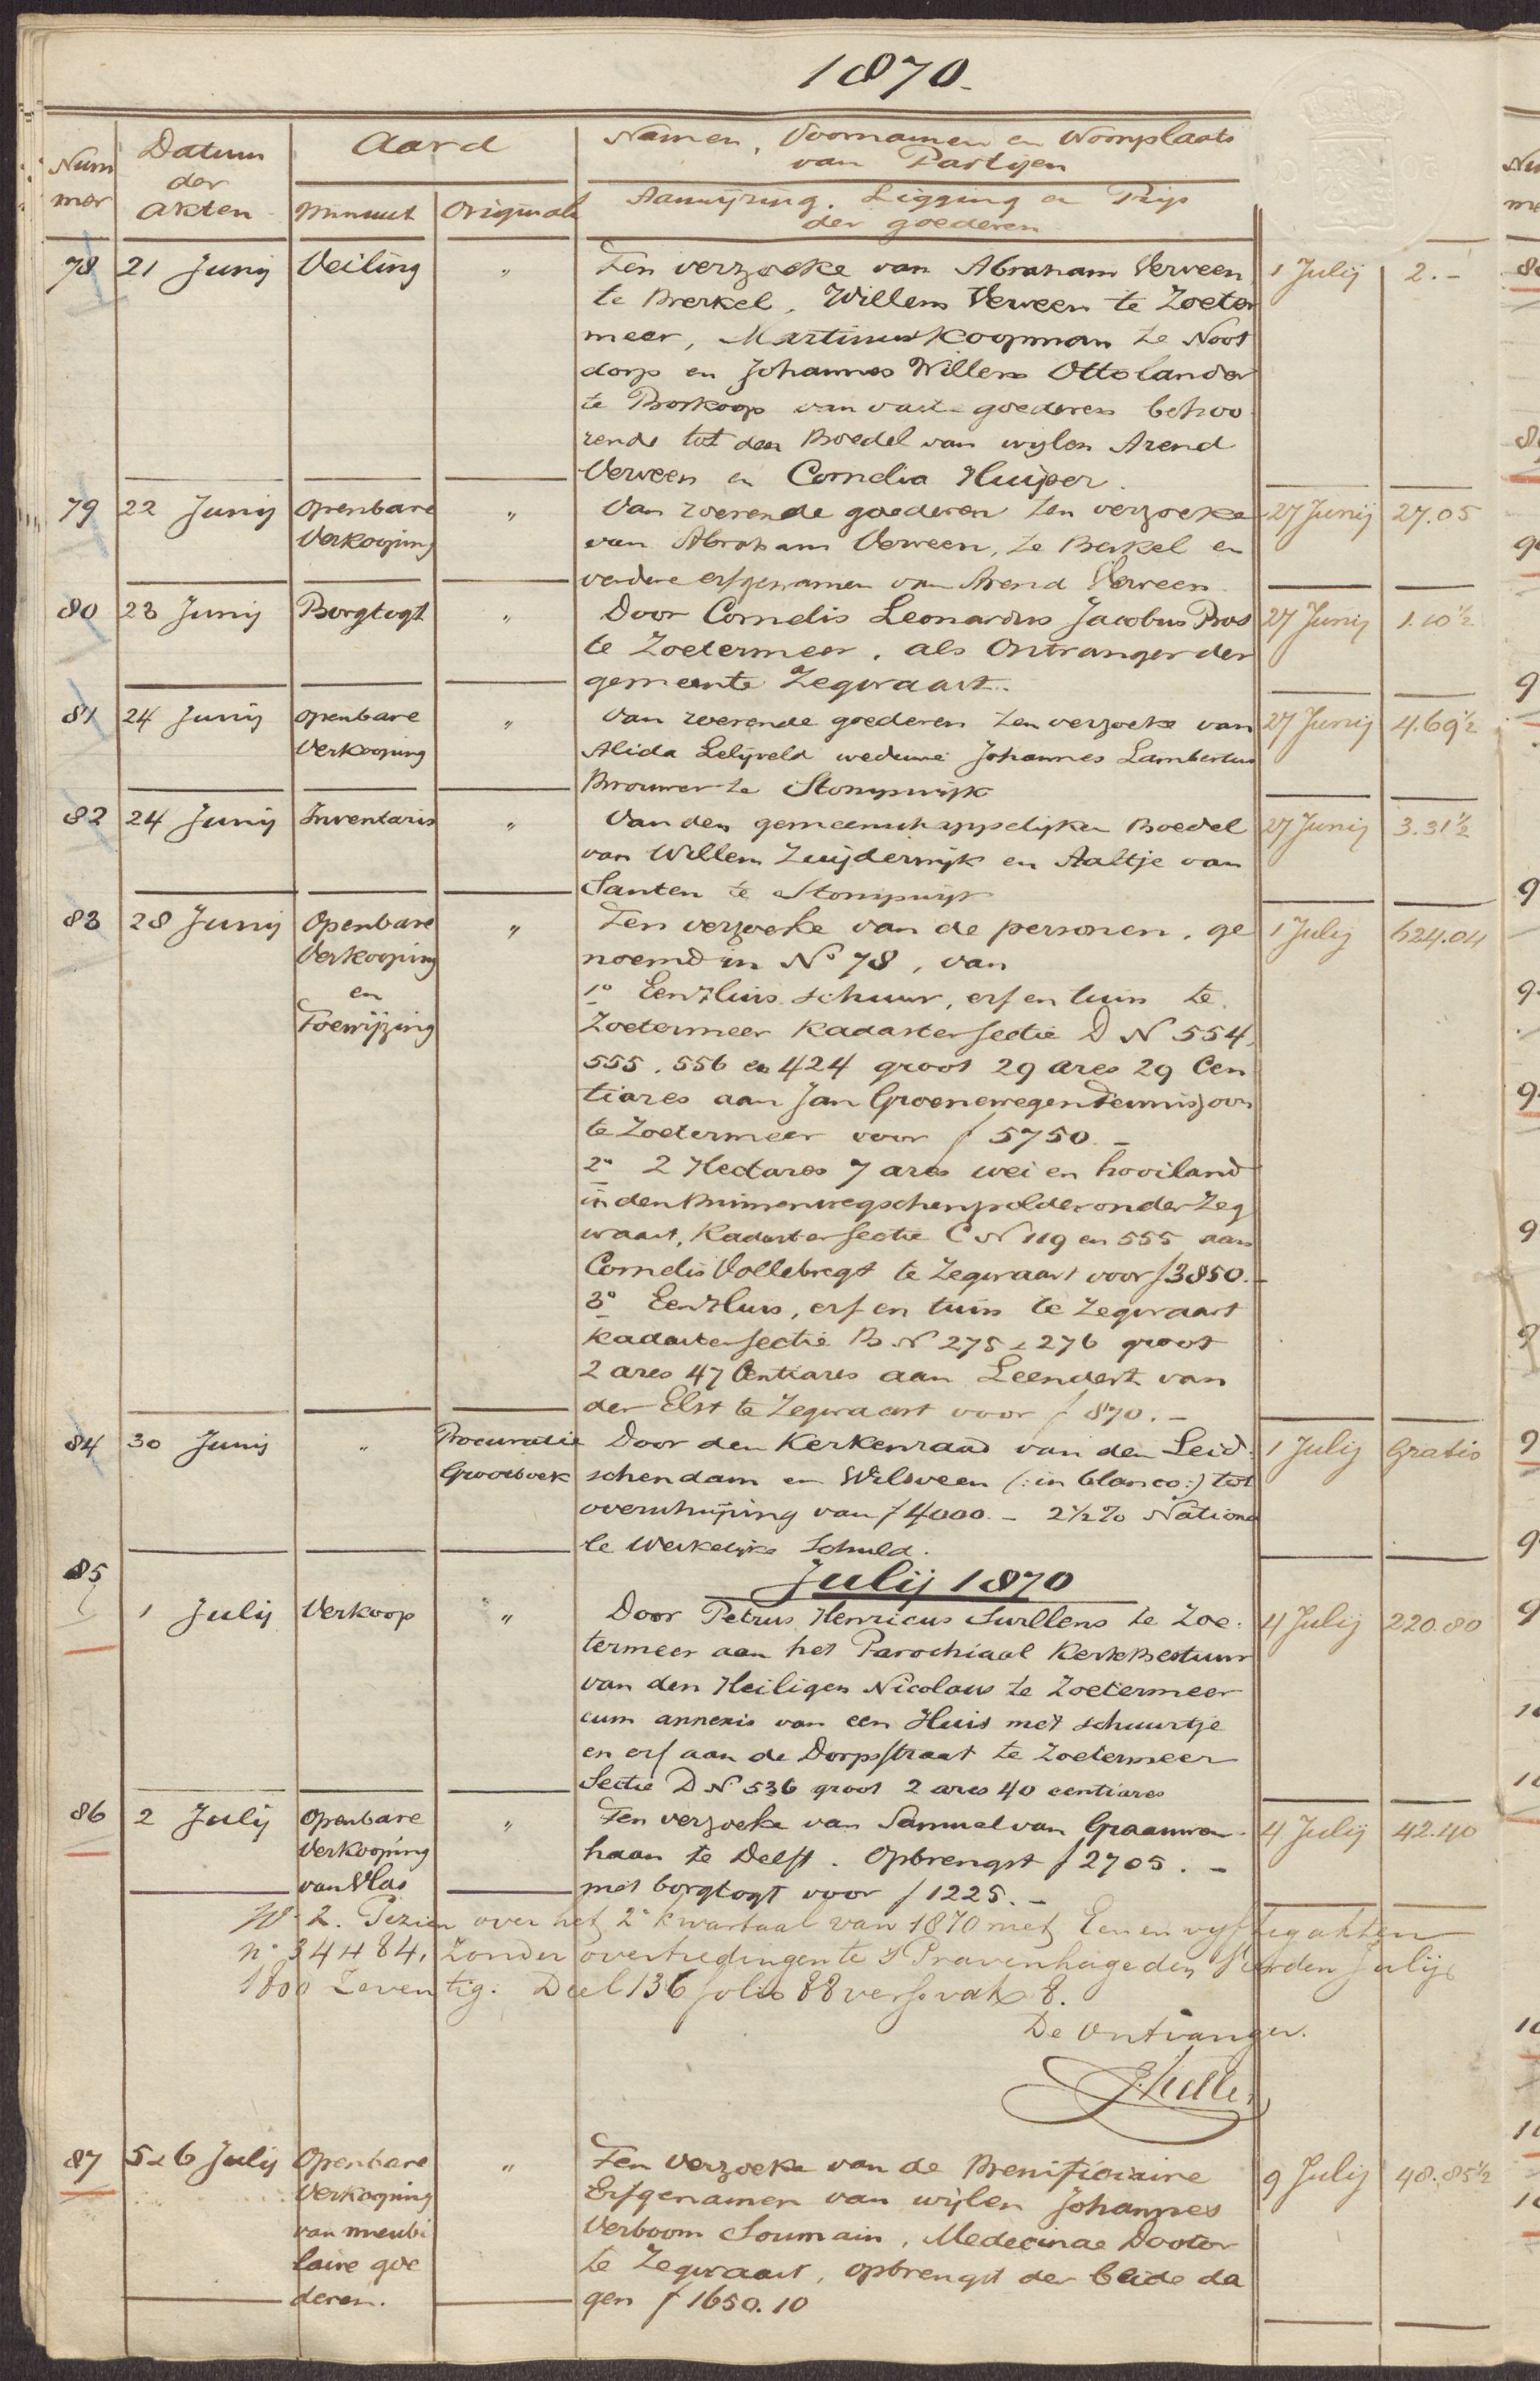 1870.
Num
mer
Datum
der
Akten
Aard
Minuut
Originali
Namen, Voornamen en Woonplaats
van Partijen
Aanwijzing, Ligging en Prijs
der goederen
78 21 Junij Veiling " Ten verzoeke van Abraham Verveen 1 Julij 2.-
te Berkel, Willem Verveen te Zoeter
meer, Martinus Koopman te Noot
dorp en Johannes Willem Ottolander
te Boskoop van vaste goederen behoo
rende tot den Boedel van wijlen Arend
Verveen en Cornelia Kuijper.
79 22 Junij Openbare " Van roerende goederen ten verzoeke 27 Junij 27.05
Verkooping van Abraham Verveen, te Berkel en
verdere erfgenamen van Arend Verveen
80 23 Junij Borgtogt " Door Cornelis Leonardus Jacobus Bos 27 Junij 1.10½
te Zoetermeer, als Ontvanger der
gemeente Zegwaart.
81 24 Junij openbare " Van roerende goederen ten verzoeke van 27 Junij 4.69½
Verkooping Alida Lelijveld weduwe Johannes Lambertus
Brouwer te Stompwijk
82 24 Junij Inventaris " Van den gemeenschappelijken Boedel 27 Junij 3.31½
van Willem Zuijderwijk en Aaltje van
Santen te Stompwijk
83 28 Junij Openbare " Ten verzoeke van de personen, ge 1 Julij 624.04
Verkooping noemd in No 78, van
en 1o Een Huis schuur, erf en tuin te
Toewijzing Zoetermeer Kadaster sectie D N 554,
555, 556 en 424 groot 29 ares 29 Cen
tiares aan Jan Groenewegen Teuniszoon
te Zoetermeer voor f 5750.-
2o 2 Hectares 7 ares wei en hooiland
in den Binnenwegschenpolder onder Zeg
waart, Kadaster sectie C N 119 en 555 aan
Cornelis Vollebregt te Zegwaart voor f 3850.-
3o Een Huis, erf en tuin te Zegwaart
Kadaster sectie B N 275 & 276 groot
2 ares 47 Centiares aan Leendert van
der Elst te Zegwaart voor f 870.-
84 30 Junij " Procuratie Door den Kerkenraad van den Leid 1 Julij Gratis
Grootboek schendam en Wilsveen (: in blanco:) tot
overschrijving van f 4000.- 2½% Nationa
le Werkelijke Schuld.
85 Julij 1870
1 Julij Verkoop " Door Petrus Henricus Suillens te Zoe 4 Julij 220.80
termeer aan het Parochiaal KerkBestuur
van den Heiligen Nicolaus te Zoetermeer
cum annexis van een Huis met schuurtje
en erf aan de Dorpsstraat te Zoetermeer
Sectie D N 536 groot 2 ares 40 centiares
86 2 Julij Openbare " Ten verzoeke van Samuel van Graauwen 4 Julij 42.40
Verkooping haan te Delft. Opbrengst f 2705.-
van Vlas met borgtogt voor f 1225.-
W. 2. Gezien over het 2e kwartaal van 1870 met Een en vijftig akten
no 34484, zonder overtredingen te s Gravenhage den Julij
1800 Zeventig. Deel 136 folio 88 verso vak 8.
De Ontvanger.
87 5 & 6 Julij Openbare " Ten verzoeke van de Benificiaire 9 Julij 48.85½
Verkooping Erfgenamen van wijlen Johannes
van meubi Verboom Soumain, Medecinae Doctor
laire goe te Zegwaart, opbrengst der beide da
deren. gen f 1650.10